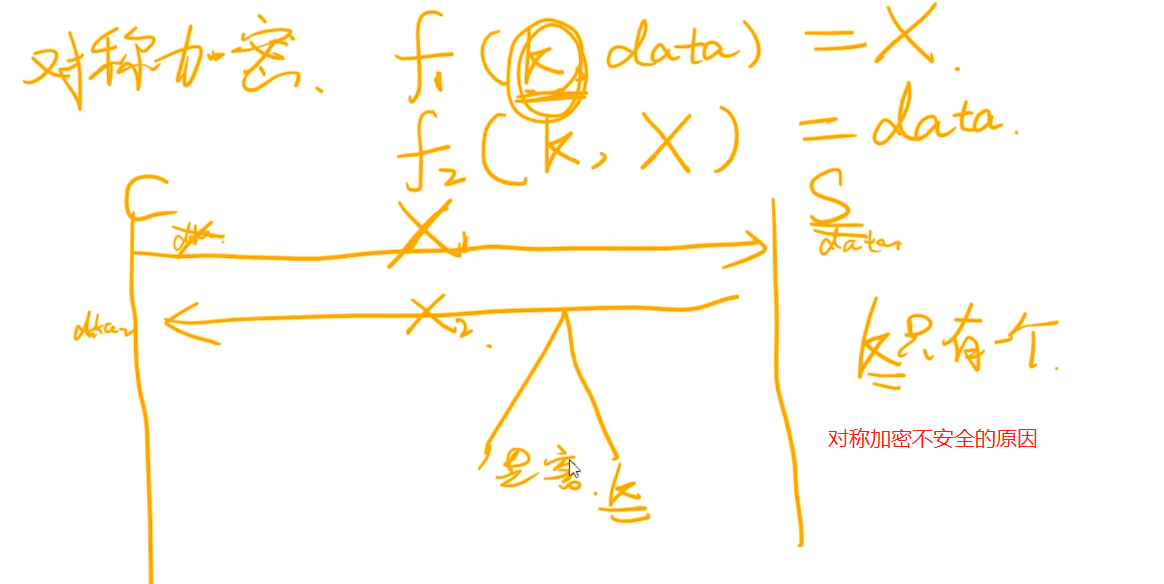 对称加密、 f₁(k, data) = X.
f₂(k, X) = data.
C S
data X₁ data₁
data₂ X₂.
k只有一个.
对称加密不安全的原因
k